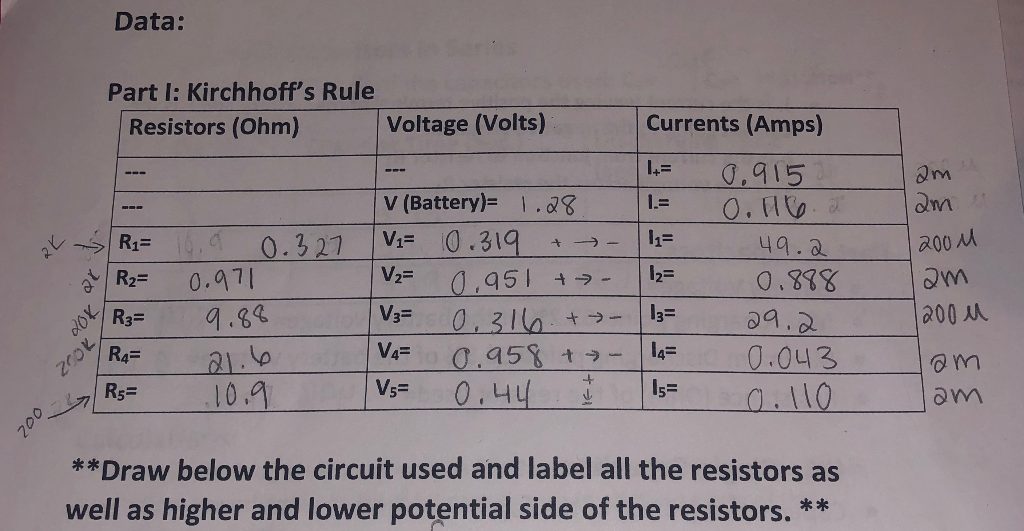 Data:
Part I: Kirchhoff's Rule
Resistors (Ohm) Voltage (Volts) Currents (Amps)
--- --- I₊= 0.915 2m
--- V (Battery)= 1.28 I₋= 0.116 2m
2K → R₁= 0.327 V₁= 0.319 + → - I₁= 49.2 200 M
2K R₂= 0.971 V₂= 0.951 + → - I₂= 0.888 2m
20K R₃= 9.88 V₃= 0.316 + → - I₃= 29.2 200 M
200K R₄= 21.6 V₄= 0.958 + → - I₄= 0.043 2m
200 → R₅= 10.9 V₅= 0.44 + ↓ - I₅= 0.110 2m
**Draw below the circuit used and label all the resistors as
well as higher and lower potential side of the resistors. **